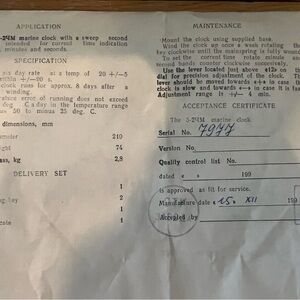 APPLICATION
5-24M marine clock with a sweep second
intended for current time indication
minutes and seconds.
SPECIFICATION
six day rate at a temp of 20 +/-5
within +/-20 s.
clock runs for approx. 8 days after a
winding
mean error of running does not exceed
deg C a day in the temperature range
50 to minus 25 deg. C.
dimensions, mm
diameter 210
height 74
mass, kg 2,8
DELIVERY SET
1
key 2
1
1
MAINTENANCE
Mount the clock using supplied base.
Wind the clock up once a week rotating the
key clockwise until the mainspring is fully wound
To set the current time rotate minute
second hands counter clockwise successively.
Use the lever located just above «12» on
dial for precision adjustment of the clock. The
lever should be moved towards «+» in case
clock is slow and towards «-» in case it is fast
Adjustment range is +/- 4 min.
ACCEPTANCE CERTIFICATE
The 5-24M marine clock.
Serial No. 7977
Version No.
Quality control list No.
dated « » 199
is approved as fit for service.
Manufacture date «15» XII 199
Accepted by